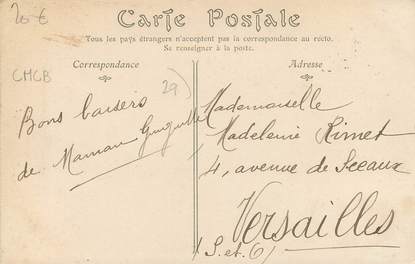 20 €
Carte Postale
Tous les pays étrangers n'acceptent pas la correspondance au recto.
Se renseigner à la poste.
Correspondance
Adresse
CMCB
29)
Bons baisers
de Maman
Mademoiselle
Madeleine Rimet
4, avenue de Sceaux
Versailles
(S. et O)